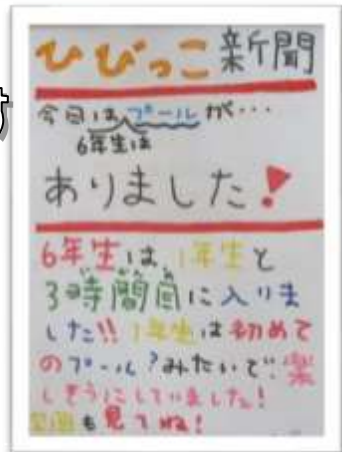 ひびっこ新聞
今日はプールが・・・
6年生は
ありました!
6年生は、1年生と
3時間目に入りま
した!! 1年生は初めて
のプール?みたいで、楽
しそうにしていました!
も見てね!